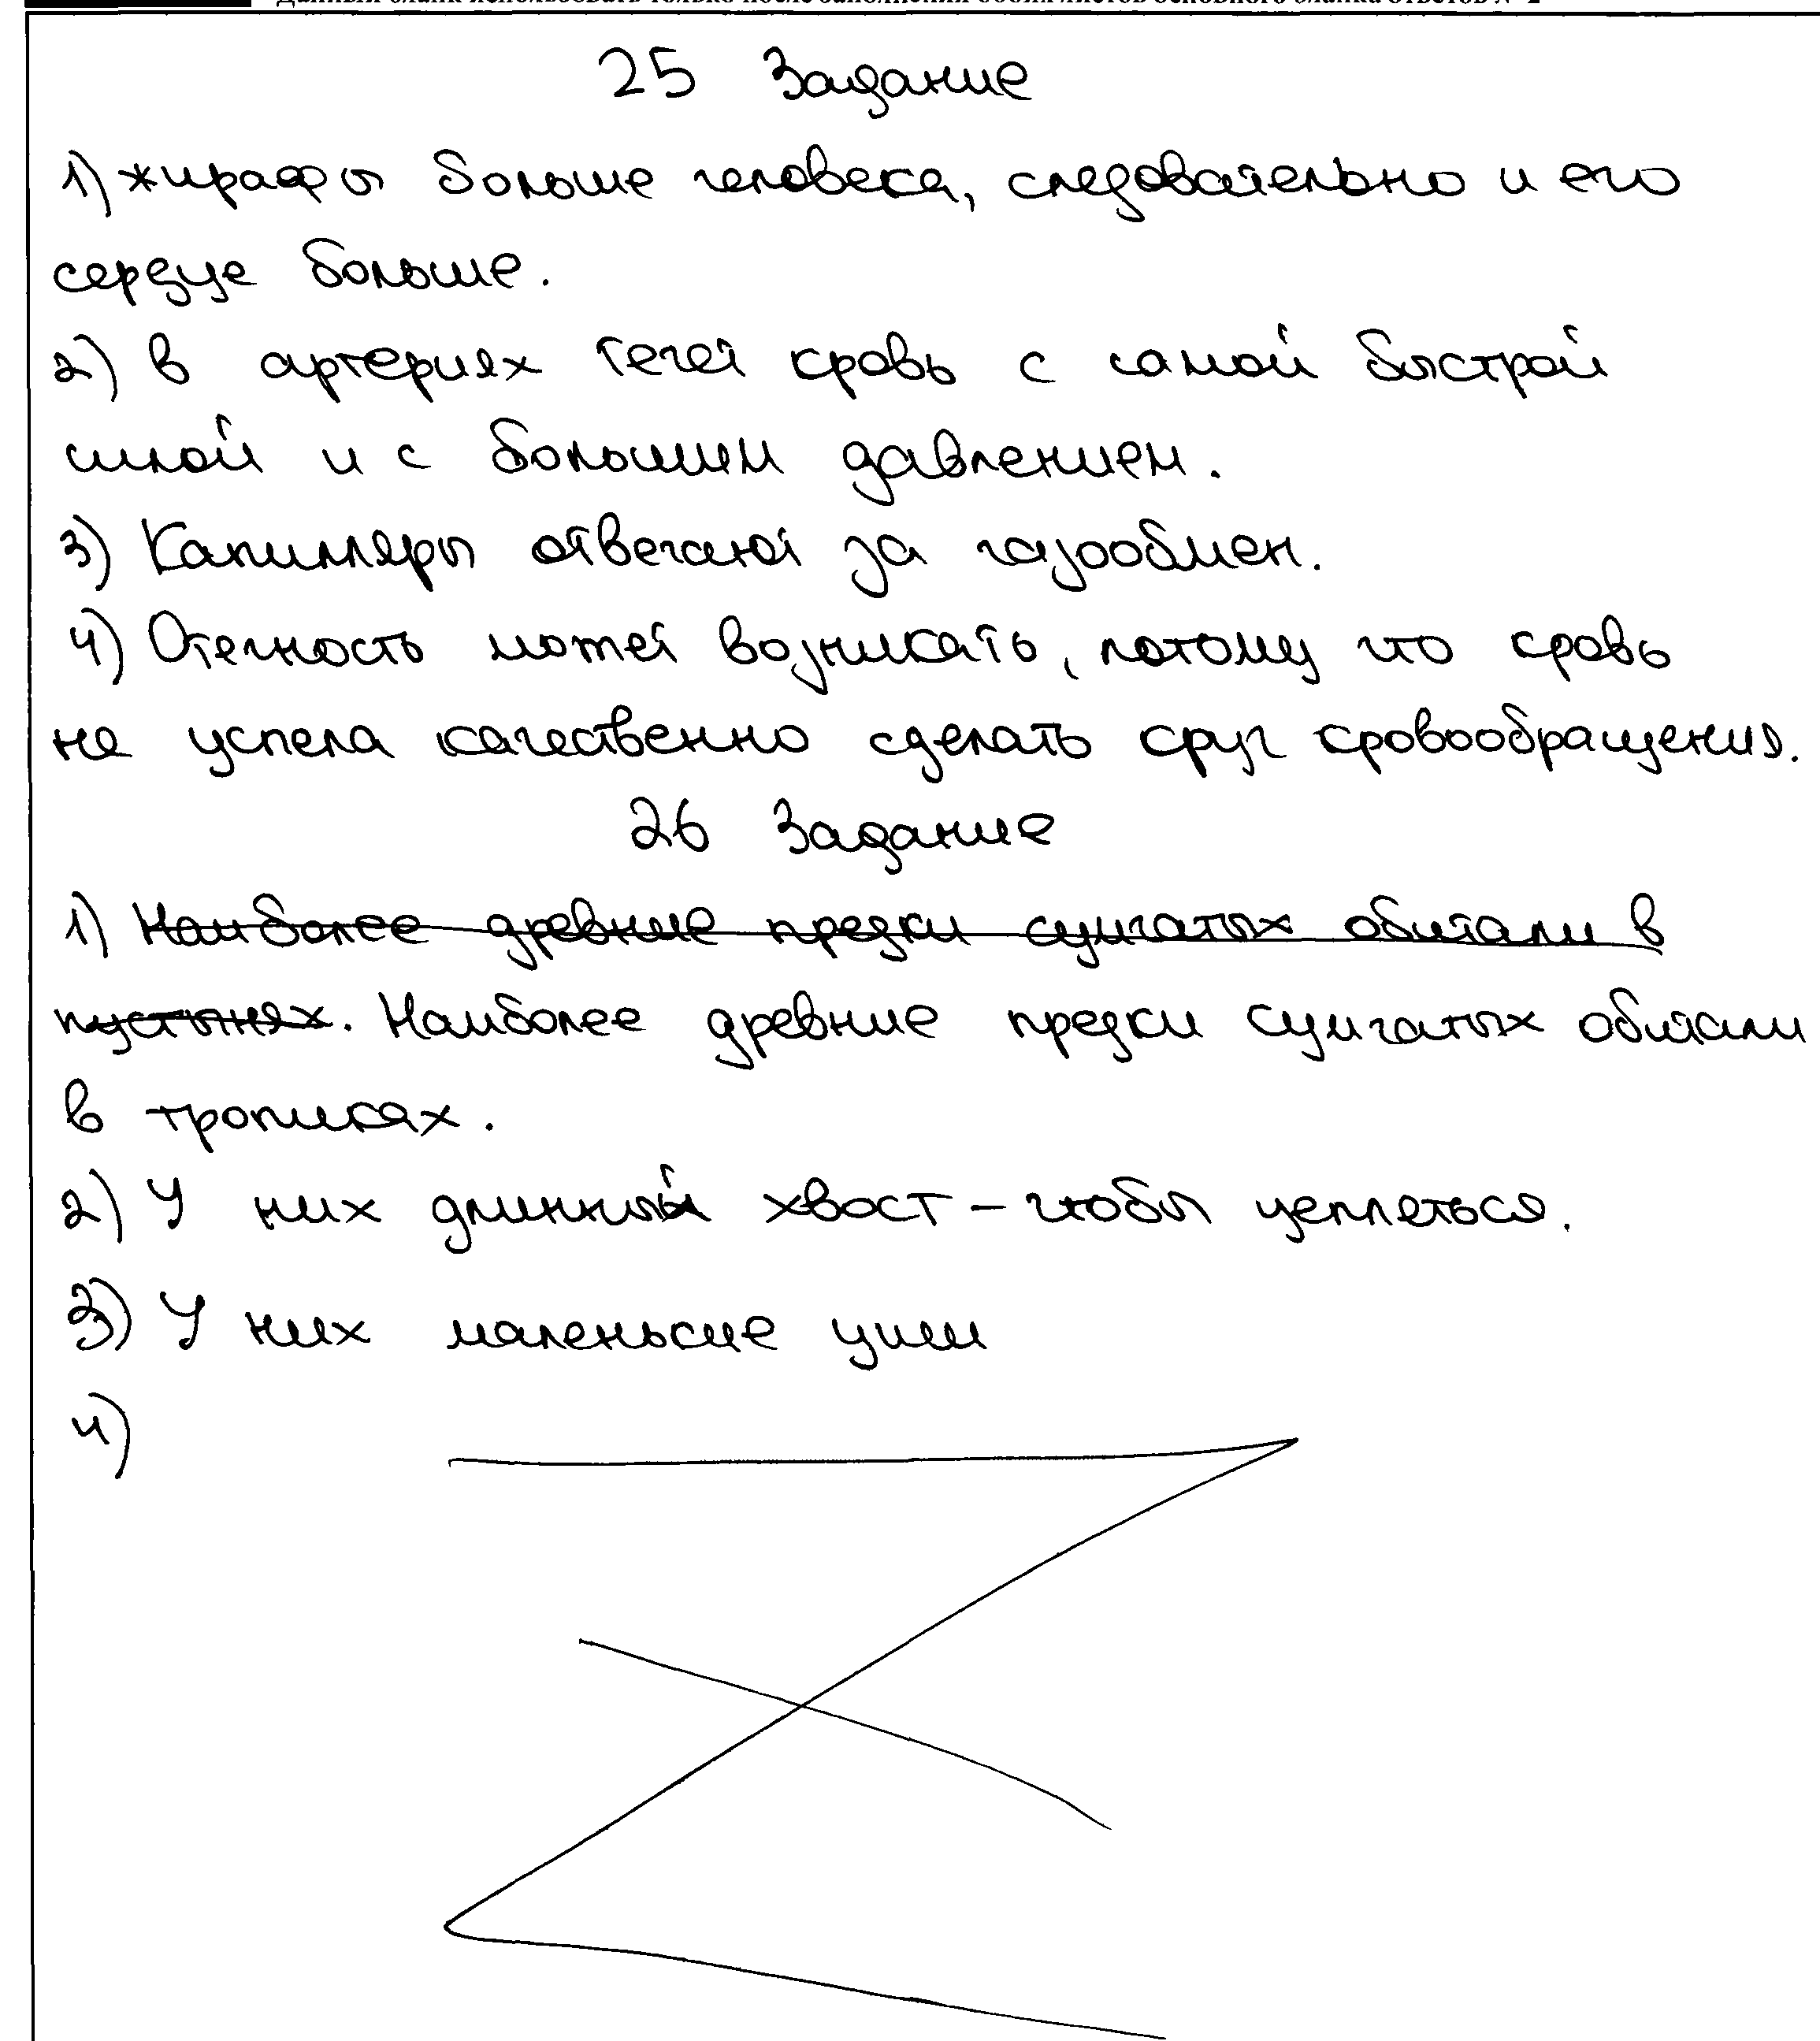 25 Задание
1) жирафы больше человека, следовательно и его
сердце больше.
2) В артериях течет кровь с самой быстрой
силой и с большим давлением.
3) Капилляры отвечают за газообмен.
4) Отечность может возникать, потому что кровь
не успела качественно сделать круг кровообращения.
26 Задание
1) Наиболее древние предки сумчатых обитали в
пустынях. Наиболее древние предки сумчатых обитали
в тропиках.
2) У них длинный хвост – чтобы цепляться.
3) У них маленькие уши
4)